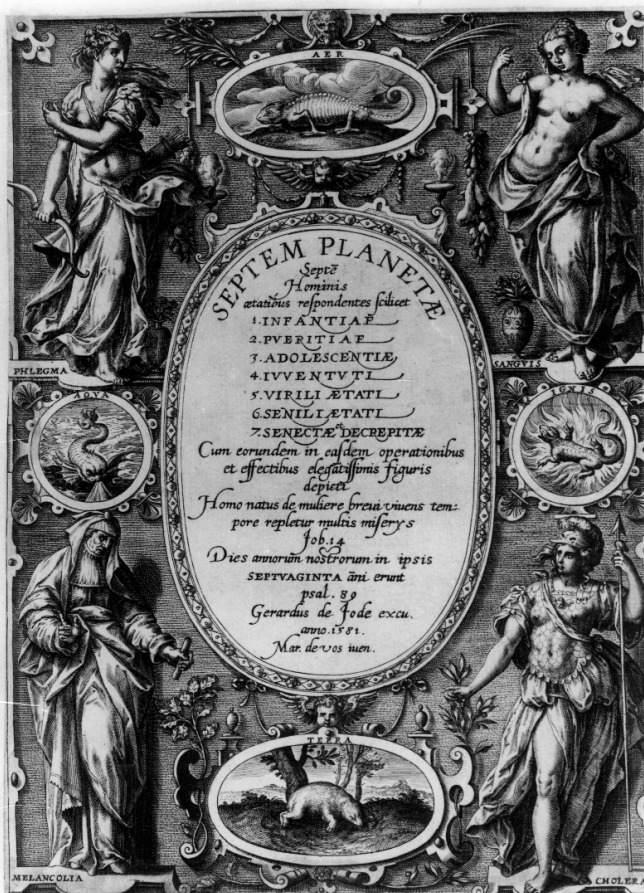 AER
SEPTEM PLANETÆ
Septē
Hominis
ætatibus respondentes scilicet
1. INFANTIAE
2. PVERITIAE
3. ADOLESCENTIÆ
4. IVVENTVTI
5. VIRILI ÆTATI
6. SENILI ÆTATI
et
7. SENECTÆ DECREPITÆ
Cum eorundem in easdem operationibus
et effectibus elegātissimis figuris
depicti
Homo natus de muliere brevi vivens tem:
pore repletur multis miserys
Job. 14
Dies annorum nostrorum in ipsis
SEPTVAGINTA āni erunt
psal. 89
Gerardus de Jode excu.
anno. 1581.
Mar. de vos inven.
PHLEGMA
SANGVIS
AQVA
IGNIS
TERRA
MELANCOLIA
CHOLERA